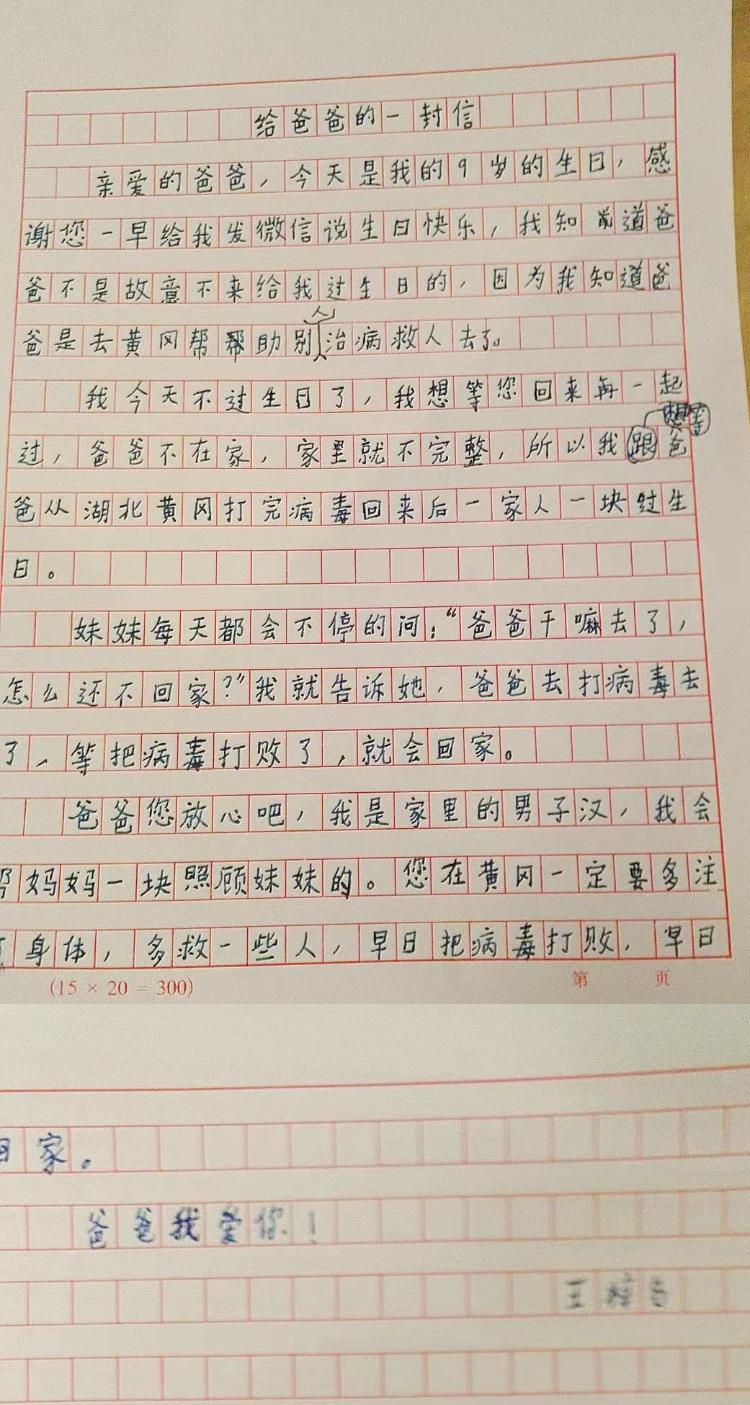 给爸爸的一封信
亲爱的爸爸，今天是我的9岁的生日，感
谢您一早给我发微信说生日快乐，我知道爸
爸不是故意不来给我过生日的，因为我知道爸
爸是去黄冈帮帮助别人治病救人去了。
我今天不过生日了，我想等您回来再一起
过，爸爸不在家，家里就不完整，所以我想等爸
爸从湖北黄冈打完病毒回来后一家人一块过生
日。
妹妹每天都会不停的问：“爸爸干嘛去了，
怎么还不回家？”我就告诉她，爸爸去打病毒去
了，等把病毒打败了，就会回家。
爸爸您放心吧，我是家里的男子汉，我会
帮妈妈一块照顾妹妹的。您在黄冈一定要多注
身体，多救一些人，早日把病毒打败，早日
回家。
爸爸我爱你！
王
(15 × 20 = 300) 第 页